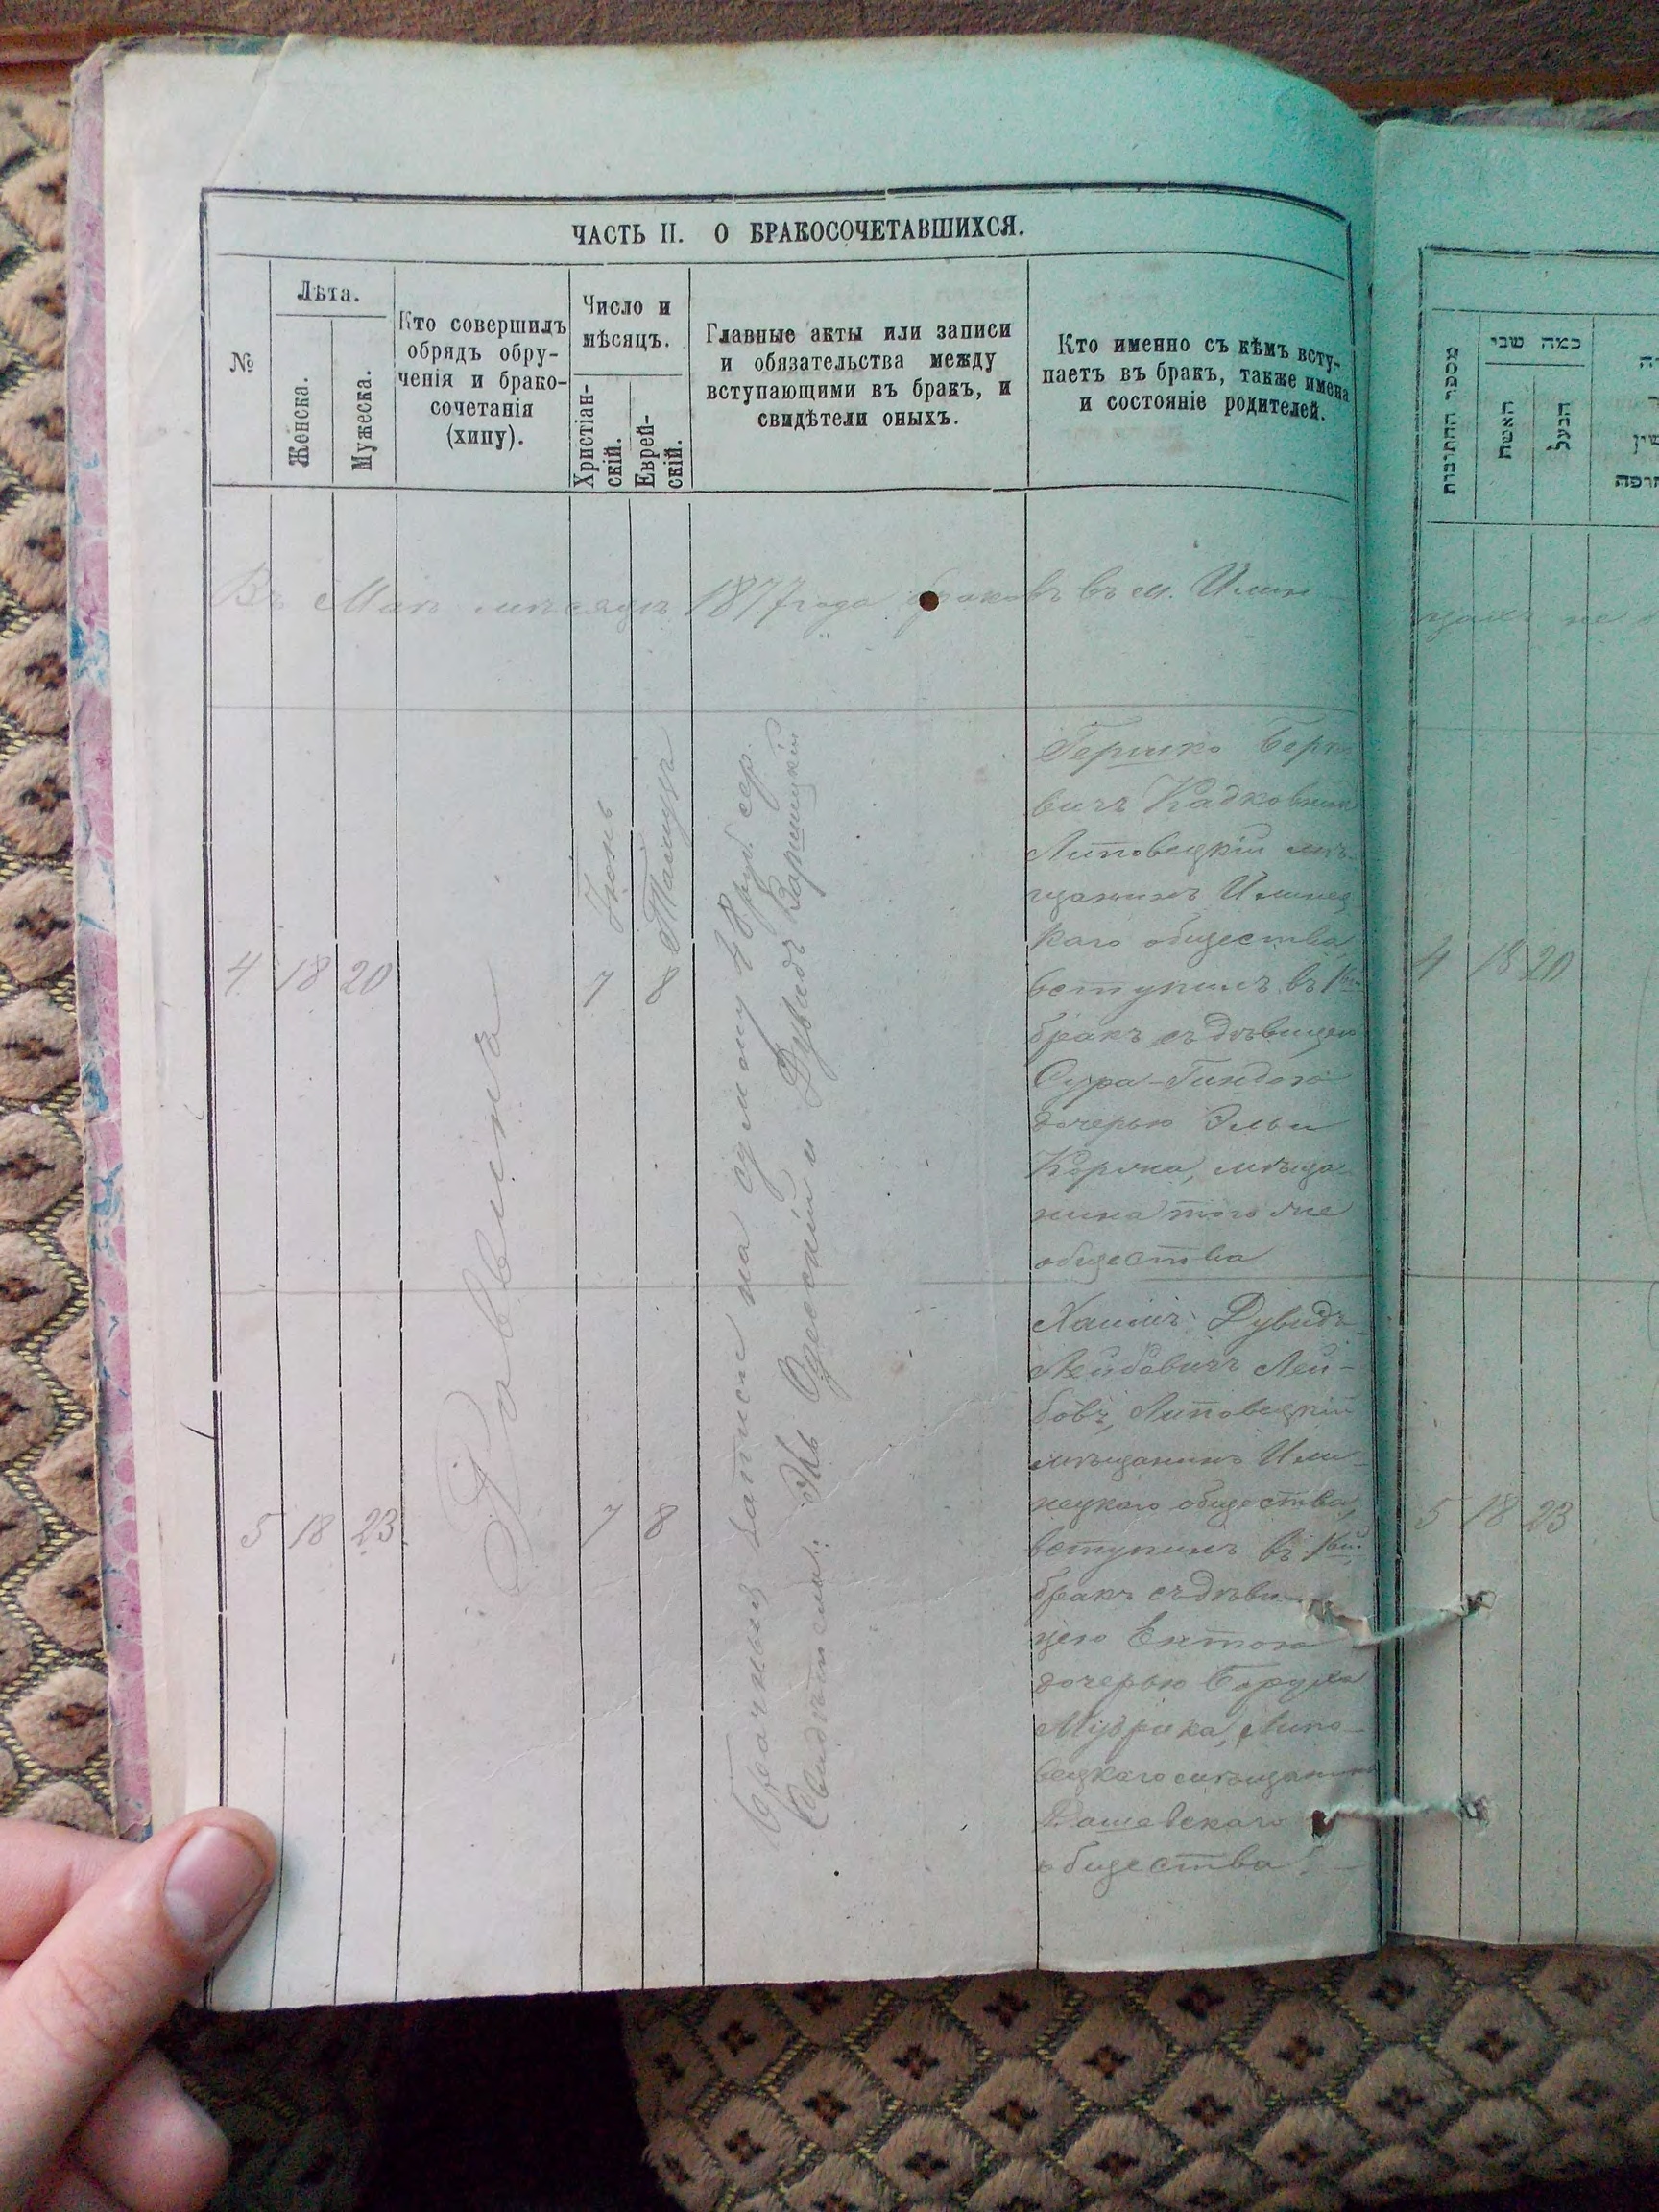 ЧАСТЬ II. О БРАКОСОЧЕТАВШИХСЯ.
№
Лѣта.
Женска.
Мужеска.
Кто совершилъ
обрядъ обру-
ченія и брако-
сочетанія
(хипу).
Число и
мѣсяцъ.
Христіан-
скій.
Еврей-
скій.
Главные акты или записи
и обязательства между
вступающими въ бракъ, и
свидѣтели оныхъ.
Кто именно съ кѣмъ всту-
паетъ въ бракъ, также имена
и состояніе родителей.
Въ Маѣ мѣсяцѣ 1877 года браковъ въ м. Илин-
4 18 20
Раввинъ
Іюнь
7
Тамузъ
8
Брачныя записи на сумму 48 руб. сер.
Свидѣтели: Одесскій и Дувидъ Варшицкій
Гершко Берко
вичъ Кадковник
Липовецкій мѣ-
щанинъ Илинец
каго общества,
вступилъ въ 1й
бракъ съ дѣвицею
Сура-Гиндою
дочерью Эльи
мѣща-
нина того же
общества
5 18 23
7 8
Хаимъ Дувидъ
Лейбовичъ Лей-
бовъ, Липовецкій
мѣщанинъ Или-
нецкаго общества,
вступилъ въ 1ый
бракъ съ дѣви-
цею Ентою
дочерью Боруха
Липо-
вецкаго мѣщанина
Дашевскаго
общества. -
מספר החתונות
כמה שני
האשה
הבעל
щахъ не
4 18 20
5 18 23